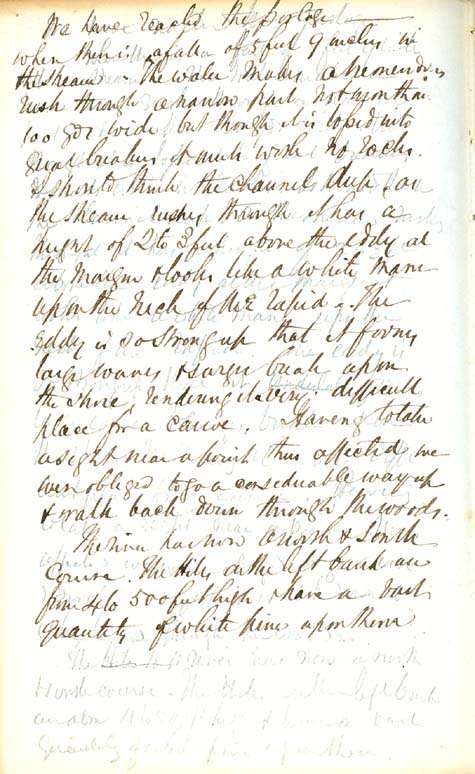 We have reached the portage
when there is a fall of 5 feet 9 inches in
the stream. The water makes a tremendous
rush through a narrow part not more than
100 yds wide but though it is loped into
great breakers it much work no rocks.
I should think the channel deep, as
the stream rushes through it has a
height of 2 to 3 feet above the eddy at
the margin & looks like a white mane
upon the neck of the rapid. The
Eddy is so strong up that it forms
large waves & surges break upon
the shore rendering it a very difficult
place for a canoe. Having to take
a sight near a point thus affected we
were obliged to go a considerable way up
& walk back down through the woods.
The river has now a north & south
Course. The Hills on the left bank are
from 4 to 500 feet high & have a vast
quantity of white pine upon them
The river has now a north
& south course. The Hills on the left bank
are abt 4 to 500 ft high & have a vast
Quantity of white pine upon them.